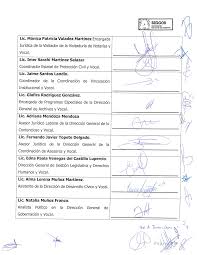 SEGOB
Lic. Mónica Patricia Valadez Martínez Encargada
Jurídica de la Visitaduría de Notarías y
Vocal.
Lic. Imer Sarahí Martínez Salazar
Coordinador Estatal de Protección Civil y Vocal.
Lic. Jaime Santos Londín.
Coordinador de la Coordinación de Vinculación
Institucional y Vocal.
Lic. Gladis Rodríguez González.
Encargada de Programas Especiales de la Dirección
General de Archivos y Vocal.
Lic. Adriana Mendoza Mendoza
Asesor Jurídico Laboral de la Dirección General
de Conductos y Vocal.
Lic. Fernando Javier Topete Delgado.
Asesor Jurídico de la Dirección General de la
Coordinación de Asesoría y Vocal.
Lic. Edna Paola Venegas del Castillo Lupercio.
Dirección General de Gestión Legislativa y Derechos
Humanos y Vocal.
Lic. Alma Lorina Muñoz Martínez.
Asistente de la Dirección de Desarrollo Cívico y Vocal.
Lic. Natalia Muñoz Franco.
Analista Político en la Dirección General de
Gobernación y Vocal.